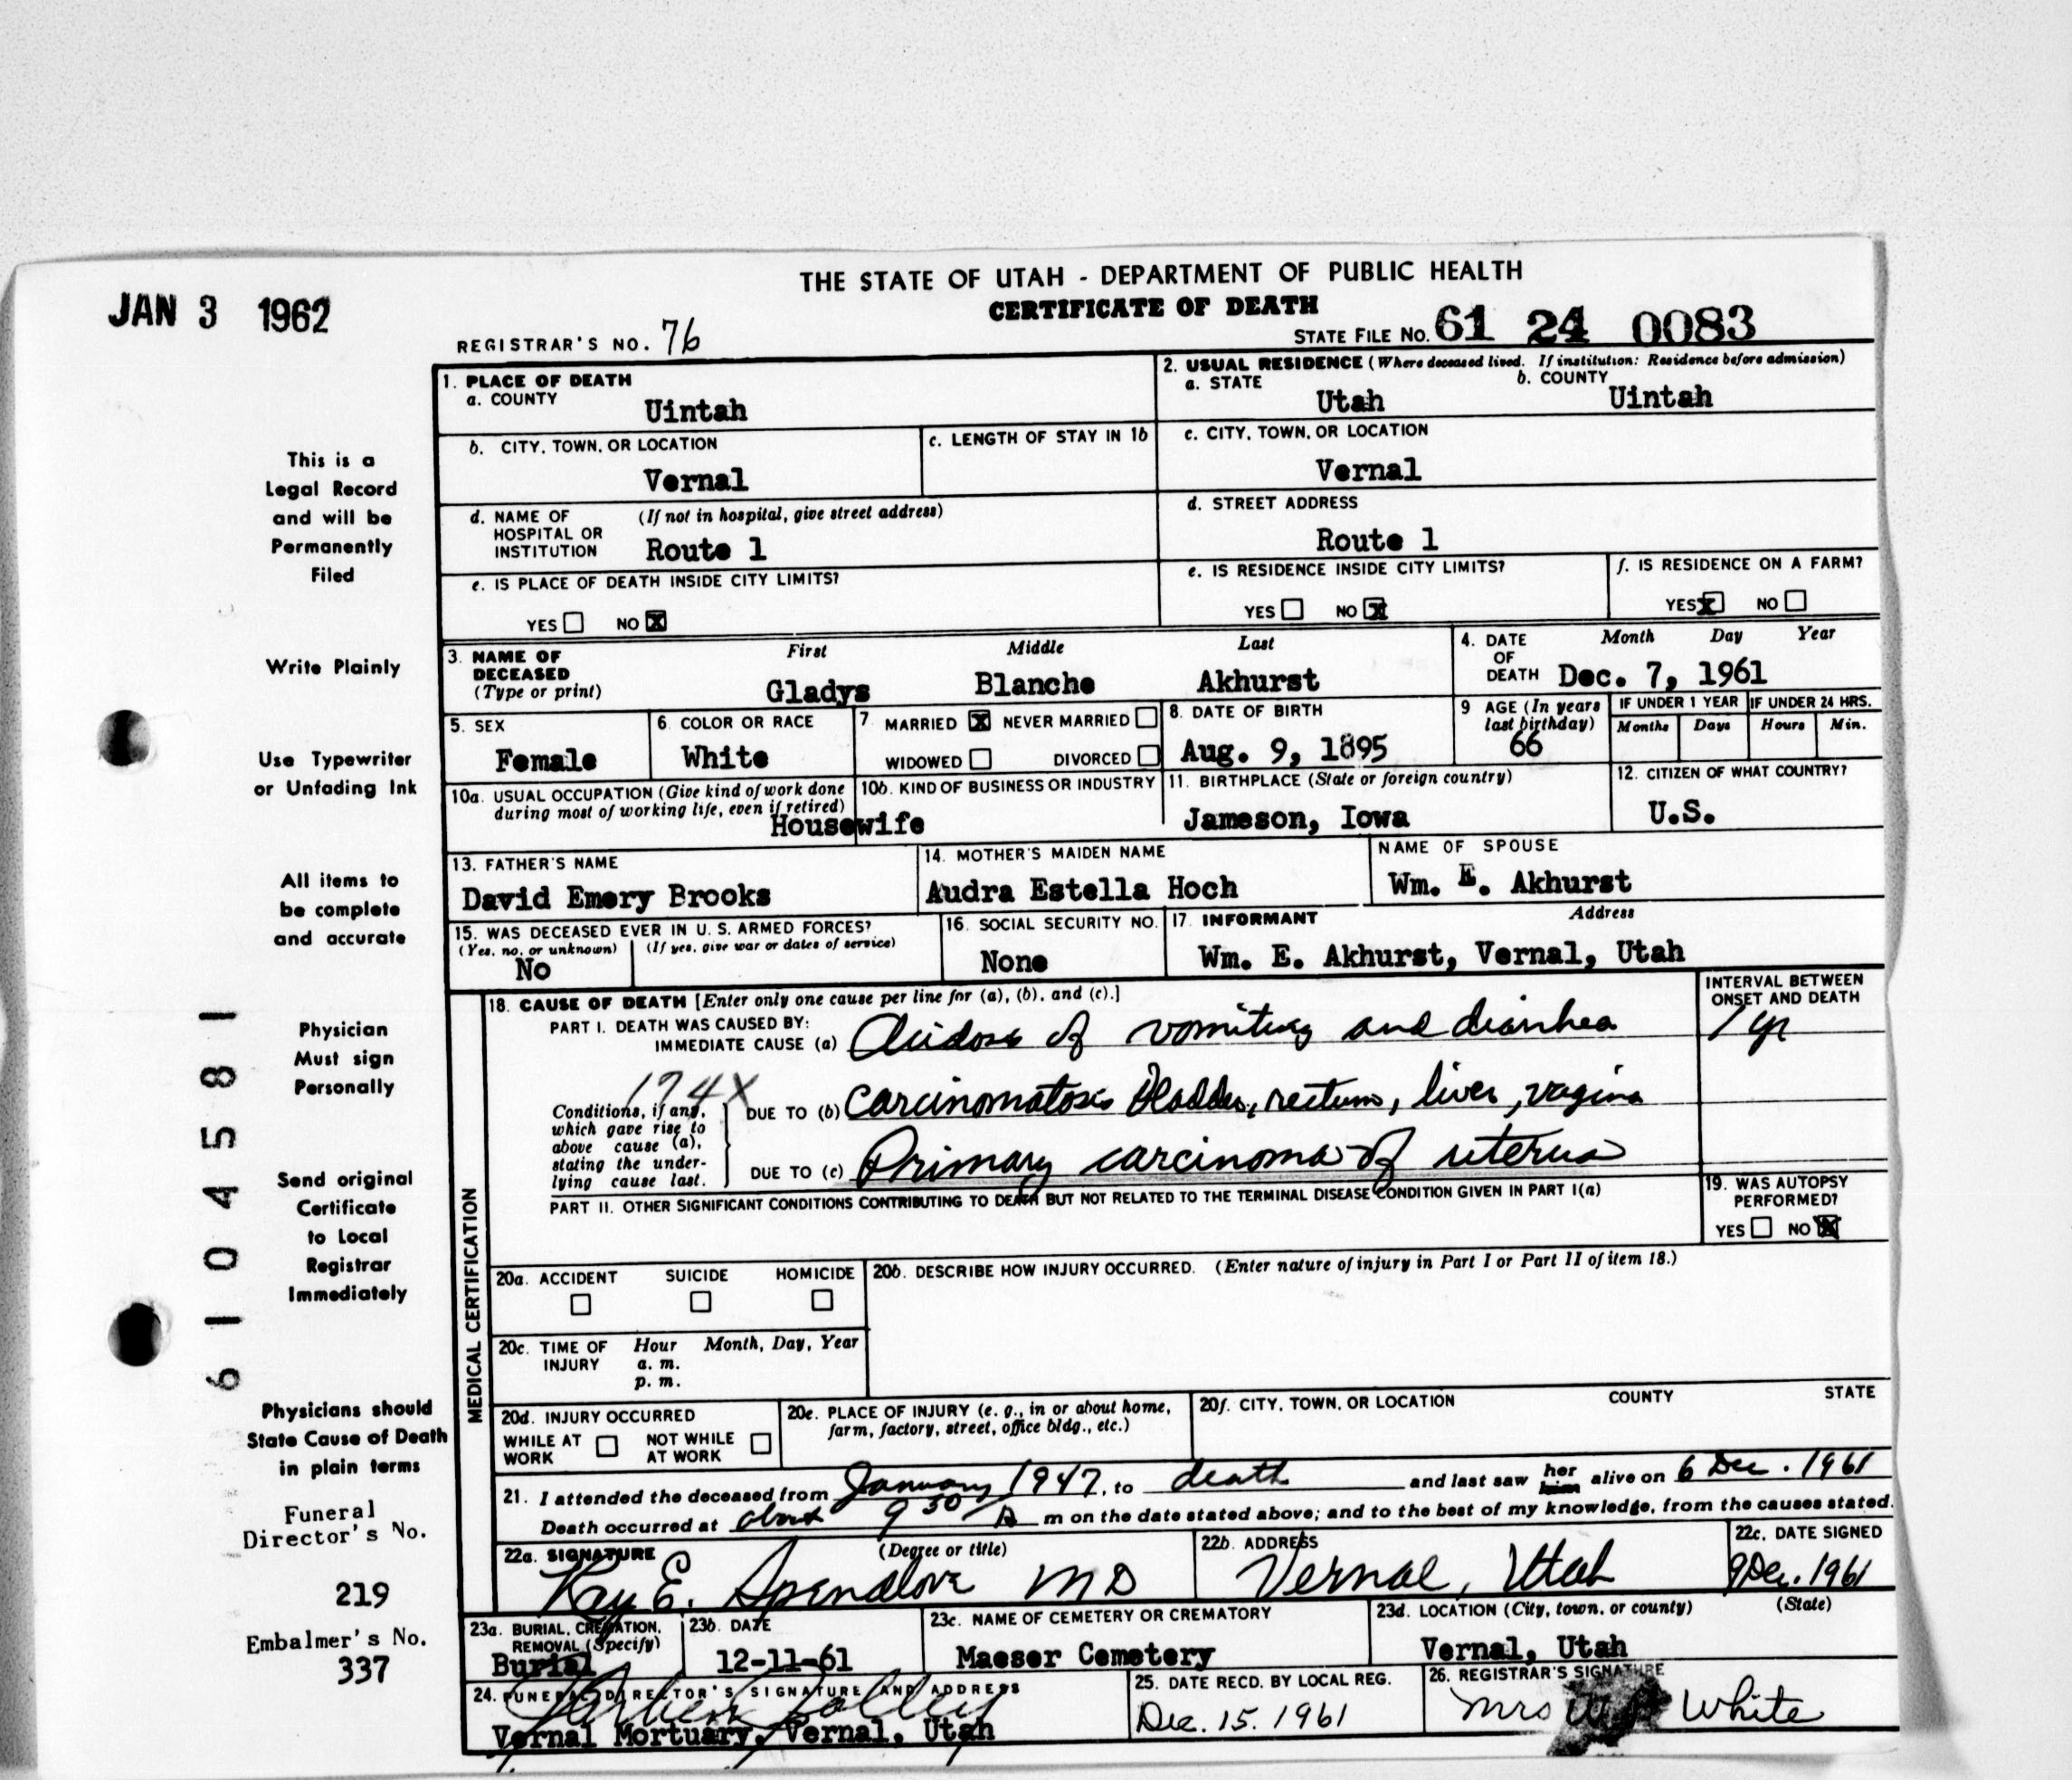 THE STATE OF UTAH - DEPARTMENT OF PUBLIC HEALTH
JAN 3 1962
CERTIFICATE OF DEATH
REGISTRAR'S NO. 76
STATE FILE NO. 61 24 0083
1. PLACE OF DEATH
a. COUNTY
Uintah
2. USUAL RESIDENCE (Where deceased lived. If institution: Residence before admission)
a. STATE
Utah
b. COUNTY
Uintah
b. CITY, TOWN, OR LOCATION
Vernal
c. LENGTH OF STAY IN 1b
c. CITY, TOWN, OR LOCATION
Vernal
d. NAME OF (If not in hospital, give street address)
HOSPITAL OR
INSTITUTION Route 1
d. STREET ADDRESS
Route 1
e. IS PLACE OF DEATH INSIDE CITY LIMITS?
YES NO X
e. IS RESIDENCE INSIDE CITY LIMITS?
YES NO X
f. IS RESIDENCE ON A FARM?
YES X NO
3. NAME OF
DECEASED
(Type or print)
First Middle Last
Gladys Blanche Akhurst
4. DATE Month Day Year
OF
DEATH Dec. 7, 1961
5. SEX
Female
6. COLOR OR RACE
White
7. MARRIED X NEVER MARRIED
WIDOWED DIVORCED
8. DATE OF BIRTH
Aug. 9, 1895
9 AGE (In years
last birthday)
66
IF UNDER 1 YEAR
Months Days
IF UNDER 24 HRS.
Hours Min.
10a. USUAL OCCUPATION (Give kind of work done
during most of working life, even if retired)
Housewife
10b. KIND OF BUSINESS OR INDUSTRY
11. BIRTHPLACE (State or foreign country)
Jameson, Iowa
12. CITIZEN OF WHAT COUNTRY?
U.S.
13. FATHER'S NAME
David Emery Brooks
14. MOTHER'S MAIDEN NAME
Audra Estella Hoch
NAME OF SPOUSE
Wm. E. Akhurst
15. WAS DECEASED EVER IN U. S. ARMED FORCES?
(Yes, no, or unknown) (If yes, give war or dates of service)
No
16. SOCIAL SECURITY NO.
None
17. INFORMANT Address
Wm. E. Akhurst, Vernal, Utah
MEDICAL CERTIFICATION
18. CAUSE OF DEATH [Enter only one cause per line for (a), (b), and (c).]
INTERVAL BETWEEN
ONSET AND DEATH
PART I. DEATH WAS CAUSED BY:
IMMEDIATE CAUSE (a) Acidosis of vomiting and diarrhea 1 yr
174X
Conditions, if any,
which gave rise to
above cause (a),
stating the under-
lying cause last.
DUE TO (b) Carcinomatosis Bladder, rectum, liver, vagina
DUE TO (c) Primary carcinoma of uterus
PART II. OTHER SIGNIFICANT CONDITIONS CONTRIBUTING TO DEATH BUT NOT RELATED TO THE TERMINAL DISEASE CONDITION GIVEN IN PART I(a)
19. WAS AUTOPSY
PERFORMED?
YES NO X
20a. ACCIDENT SUICIDE HOMICIDE
20b. DESCRIBE HOW INJURY OCCURRED. (Enter nature of injury in Part I or Part II of item 18.)
20c. TIME OF Hour Month, Day, Year
INJURY a. m.
p. m.
20d. INJURY OCCURRED
WHILE AT NOT WHILE
WORK AT WORK
20e. PLACE OF INJURY (e. g., in or about home,
farm, factory, street, office bldg., etc.)
20f. CITY, TOWN, OR LOCATION COUNTY STATE
21. I attended the deceased from January 1947, to death and last saw her him alive on 6 Dec. 1961
Death occurred at about 9 30 A m on the date stated above; and to the best of my knowledge, from the causes stated.
22a. SIGNATURE (Degree or title)
Ray E. Spendlove MD
22b. ADDRESS
Vernal, Utah
22c. DATE SIGNED
9 Dec. 1961
23a. BURIAL, CREMATION,
REMOVAL (Specify)
Burial
23b. DATE
12-11-61
23c. NAME OF CEMETERY OR CREMATORY
Maeser Cemetery
23d. LOCATION (City, town, or county) (State)
Vernal, Utah
24. FUNERAL DIRECTOR'S SIGNATURE AND ADDRESS
Vernal Mortuary, Vernal, Utah
25. DATE RECD. BY LOCAL REG.
Dec. 15. 1961
26. REGISTRAR'S SIGNATURE
Mrs White
This is a
Legal Record
and will be
Permanently
Filed
Write Plainly
Use Typewriter
or Unfading Ink
All items to
be complete
and accurate
Physician
Must sign
Personally
Send original
Certificate
to Local
Registrar
Immediately
Physicians should
State Cause of Death
in plain terms
Funeral
Director's No.
219
Embalmer's No.
337
6104581